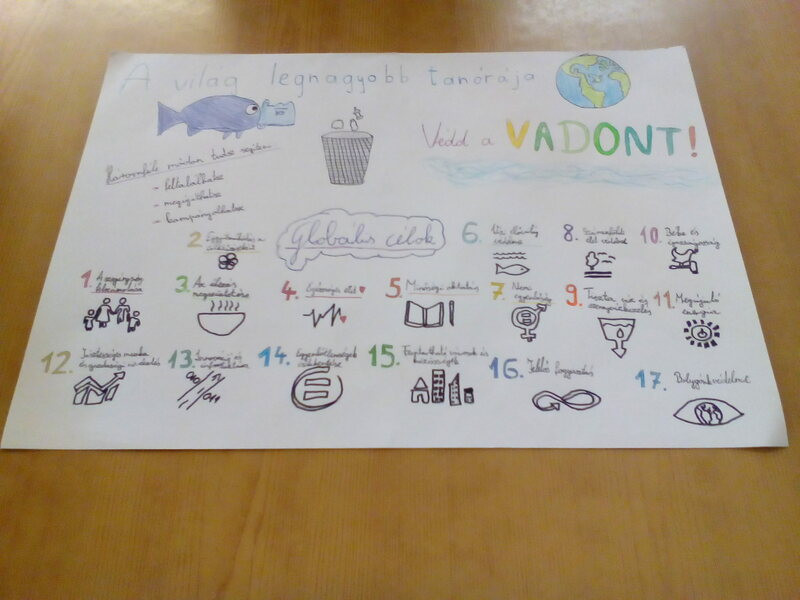 A világ legnagyobb tanórája
Védd a VADONT!
Háromféle módon tudsz segíteni
- feltalálhatsz
- megújíthatsz
- kampányolhatsz
Globális célok
1. A szegénység felszámolása
2.
3. Az éhezés megszüntetése
4. Egészséges élet
5. Minőségi oktatás
6. Víz élővilág védelme
7. Nemi egyenlőség
8. Szárazföldi élet védelme
9. Tiszta víz és
10. Béke és igazságosság
11. Megújuló energia
12. Tisztességes munka és gazdasági növekedés
13.
14. Egyenlőtlenségek csökkentése
15. Fenntartható városok és közösségek
16. Felelős fogyasztás
17. Bolygónk védelme